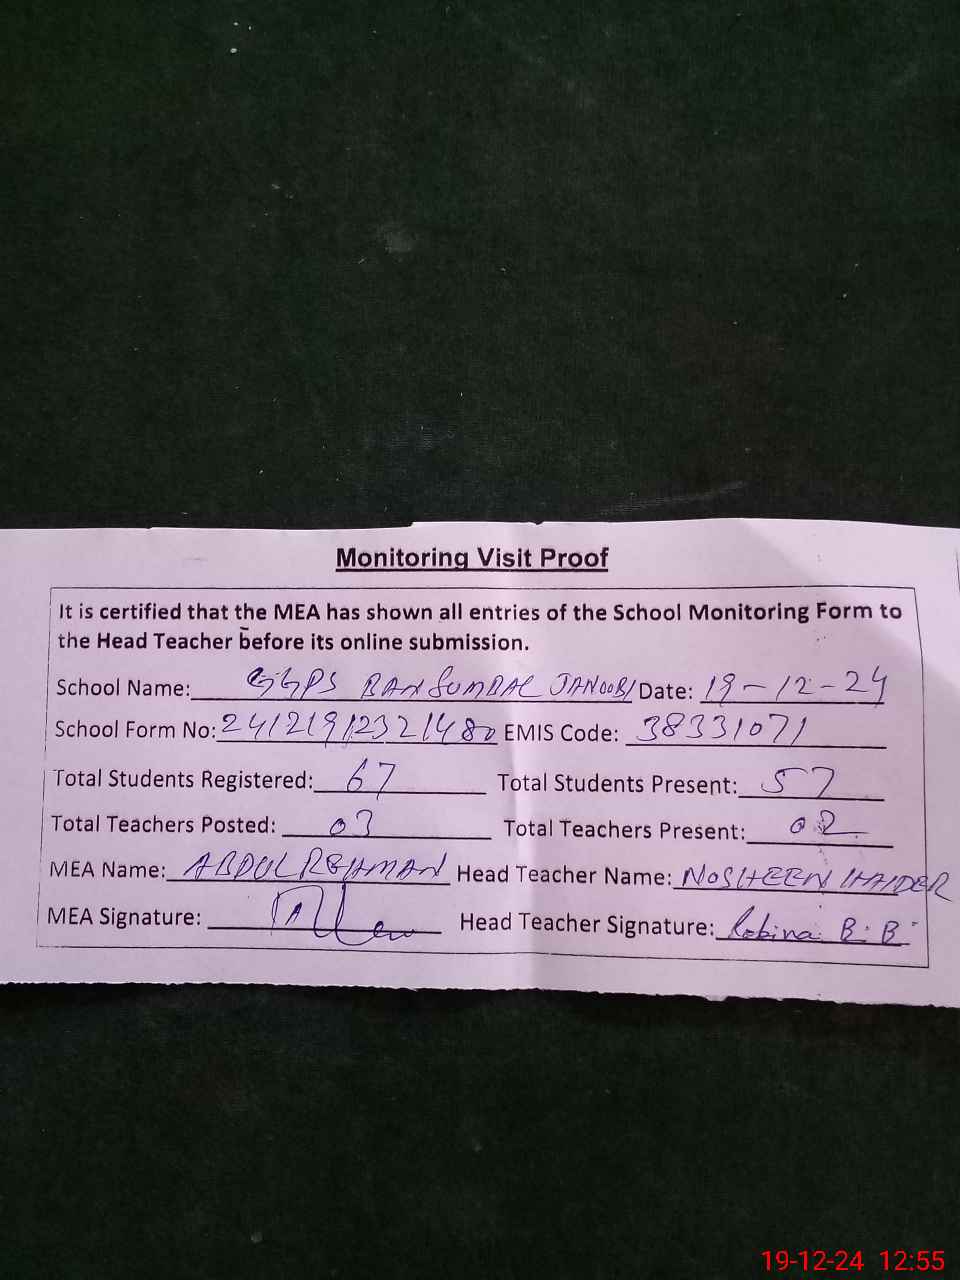 Monitoring Visit Proof
It is certified that the MEA has shown all entries of the School Monitoring Form to
the Head Teacher before its online submission.
School Name: GGPS BAN SUMBAL JANOOBI Date: 19-12-24
School Form No: 24121912321480 EMIS Code: 38331071
Total Students Registered: 67 Total Students Present: 57
Total Teachers Posted: 03 Total Teachers Present: 02
MEA Name: ABDUL REHMAN Head Teacher Name: NOSHEEN HAIDER
MEA Signature: Head Teacher Signature: Robina B:B
19-12-24 12:55